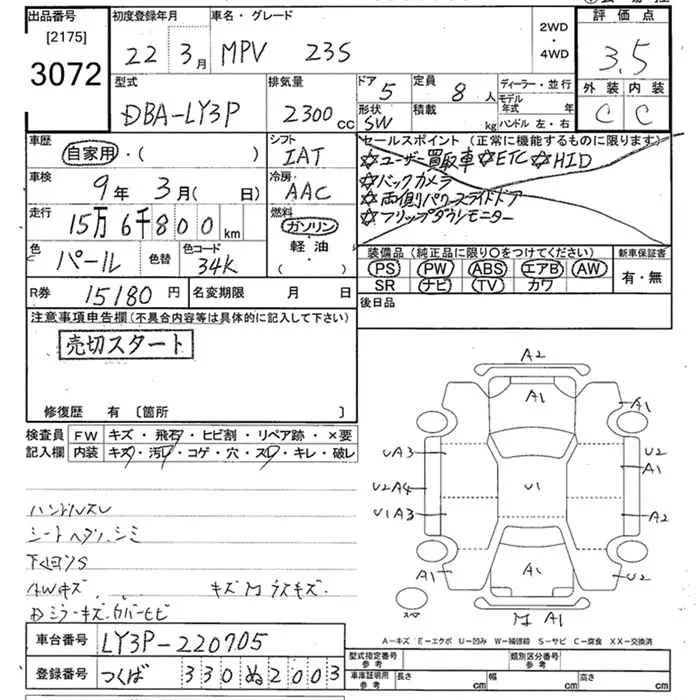 出品番号 初度登録年月 車名・グレード 2WD・4WD 評価点
[2175]
3072 22年3月 MPV 23S 3.5
型式 排気量 ドア 5 定員 8人 ディーラー・並行 外装 内装
DBA-LY3P 2300cc 形状 SW 積載 kg モデル年式 年 C C
ハンドル 左・右
車歴 シフト セールスポイント(正常に機能するものに限ります)
自家用・( ) IAT ☆ユーザー買取車 ☆ETC ☆HID
車検 冷房 ☆バックカメラ
9年3月(日) AAC ☆両側パワースライドドア
走行 15万6千800km 燃料 ガソリン・軽油・( ) ☆フリップダウンモニター
色 パール 色替 色コード 34K 装備品(純正品に限り○をつけてください) 新車保証書
PS PW ABS エアB AW 有・無
SR ナビ TV カワ
R券 15180円 名変期限 月 日 後日品
注意事項申告欄(不具合内容等は具体的に記入して下さい)
売切スタート
修復歴 有 [箇所 ]
検査員 FW キズ・飛石・ヒビ割・リペア跡・×要
記入欄 内装 キズ・汚レ・コゲ・穴・スレ・キレ・破レ
A2
A1
A1
UA3 U2
A1
U2A4 U1
U1A3 A2
A1 A1 U2
スペア
A1
ハンドルスレ
シートヘタリ.シミ
下廻りS
AWキズ
キズ
ミラーキズ.カバーヒビ
A-キズ E-エクボ U-凹み W-補修跡 S-サビ C-腐食 XX-交換済
車台番号 LY3P-220705 型式指定番号 参考 類別区分番号 参考
登録番号 つくば 330 ぬ 2003 車庫証明用 参考 長さ cm 幅 cm 高さ cm